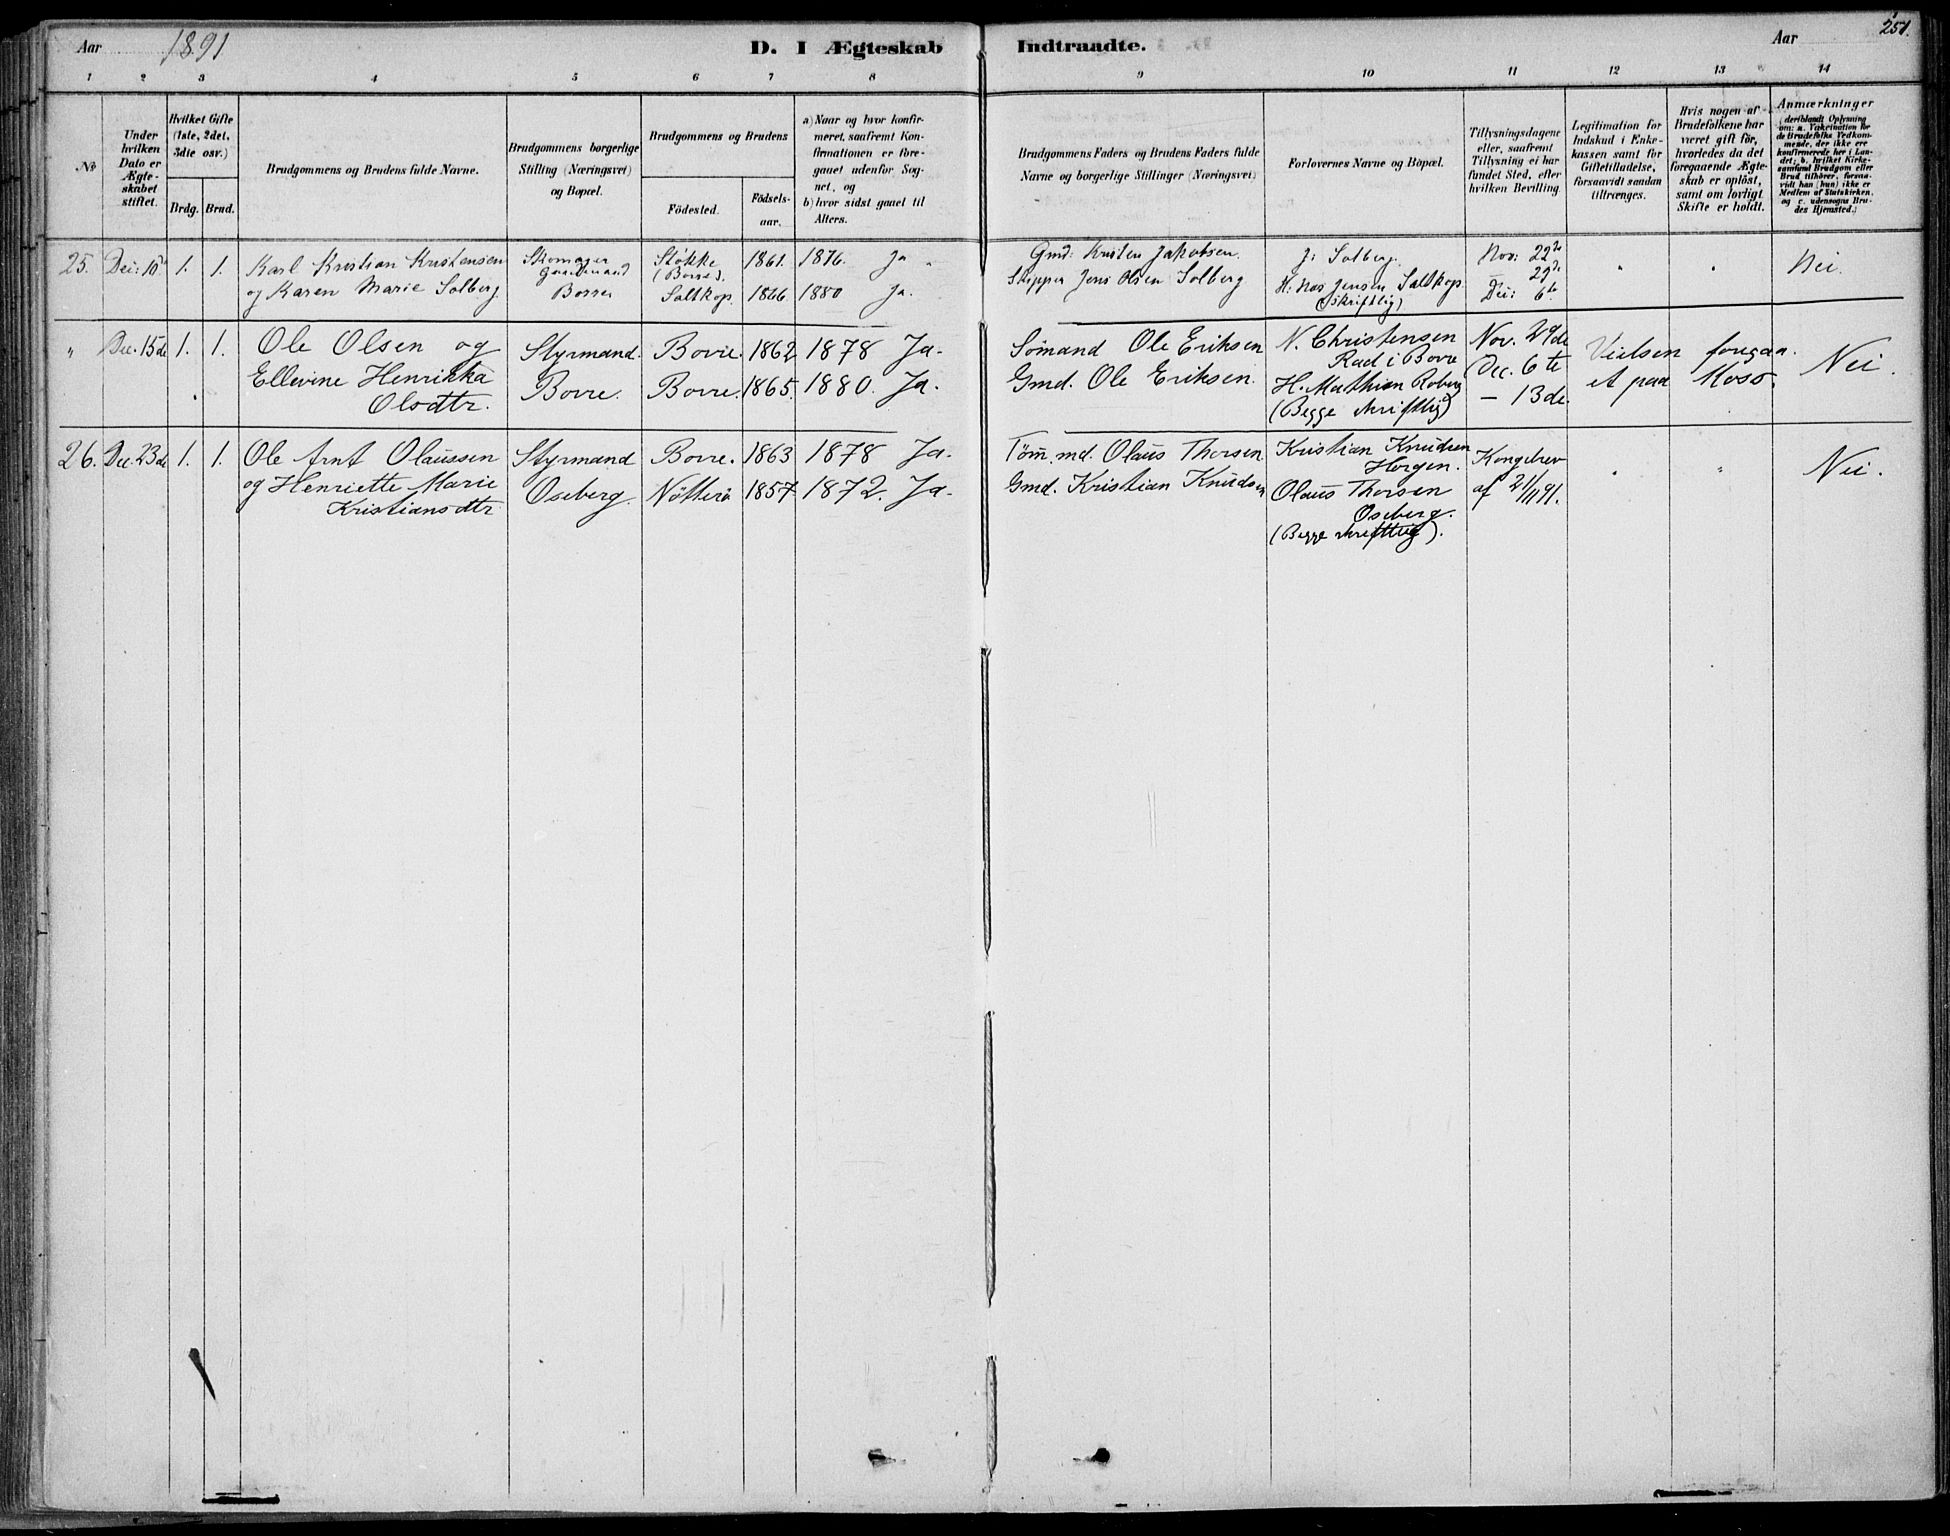 Aar 1891 D. I Ægteskab Indtraadte. Aar 251.
1 2 3 4 5 6 7 8 9 10 11 12 13 14
No
Under hvilken Dato er Ægteskabet stiftet.
Hvilket Gifte (1ste, 2det, 3die osv.)
Brdg. Brud.
Brudgommens og Brudens fulde Navne.
Brudgommens borgerlige Stilling (Næringsvei) og Bopæl.
Brudgommens og Brudens
Födested.
Födsels-aar.
a) Naar og hvor konfir-
meret, saafremt Kon-
firmationen er fore-
gaaet udenfor Sog-
net, og
b) hvor sidst gaaet til
Alters.
Brudgommens Faders og Brudens Faders fulde
Navne og borgerlige Stillinger (Næringsvei)
Forlovernes Navne og Bopæl.
Tillysningsdagene
eller, saafremt
Tillysning ei har
fundet Sted, efter
hvilken Bevilling.
Legitimation for
Indskud i Enke-
kassen samt for
Giftetilladelse,
forsaavidt saadan
tiltrænges.
Hvis nogen af
Brudefolkene har
været gift för,
hvorledes da det
foregaaende Ægte-
skab er oplöst,
samt om lovligt
Skifte er holdt.
Anmærkninger
(deriblandt Oplysning
om: a. Vakcination for
de Brudefolks Vedkom-
mende, der ikke ere
konfirmerede her i Lan-
det; b. hvilket Kirke-
samfund Brudgom eller
Brud tilhörer, forsaa-
vidt han (hun) ikke er
Medlem af Statskirken,
og c. udensogns Bru-
des Hjemsted.)
25. Dec: 10de 1. 1. Karl Kristian Kristensen Skomager Stokke 1861. 1876. Ja Gmd: Kristen Jakobsen. J. Solberg. Nov: 22de " . Nei.
Gaardmand (Borre). 29de
og Karen Marie Solberg. Borre Saltkop. 1866 1880 Ja. Skipper Jens Olsen Solberg H. Nas Jensen Saltkop Dec: 6te
(Skriftlig)
" Dec. 15de 1. 1. Ole Olsen og Styrmand. Borre. 1862 1878 Ja. Sömand Ole Eriksen N. Christensen Nov. 29de Vielsen foregaa- Nei.
Rad i Borre
Ellevine Henrikka Borre. Borre. 1865. 1880. Ja. Gmd. Ole Eriksen. H. Mathias Roberg Dec. 6te et paa Moss.
Olsdtr. (Begge skriftlig) — 13de.
26. Dec. 23de 1. 1. Ole Arnt Olaussen Styrmand Borre. 1863 1878 Ja. Tøm.md. Olaus Thorsen. Kristian Knudsen Kongebrev . " Nei.
Horgen.
og Henriette Marie Oseberg. Nötterö 1857 1872. Ja. Gmd. Kristian Knudsen Olaus Thorsen af 21/11 91.
Kristiansdtr Oseberg.
(Begge skriftlig).